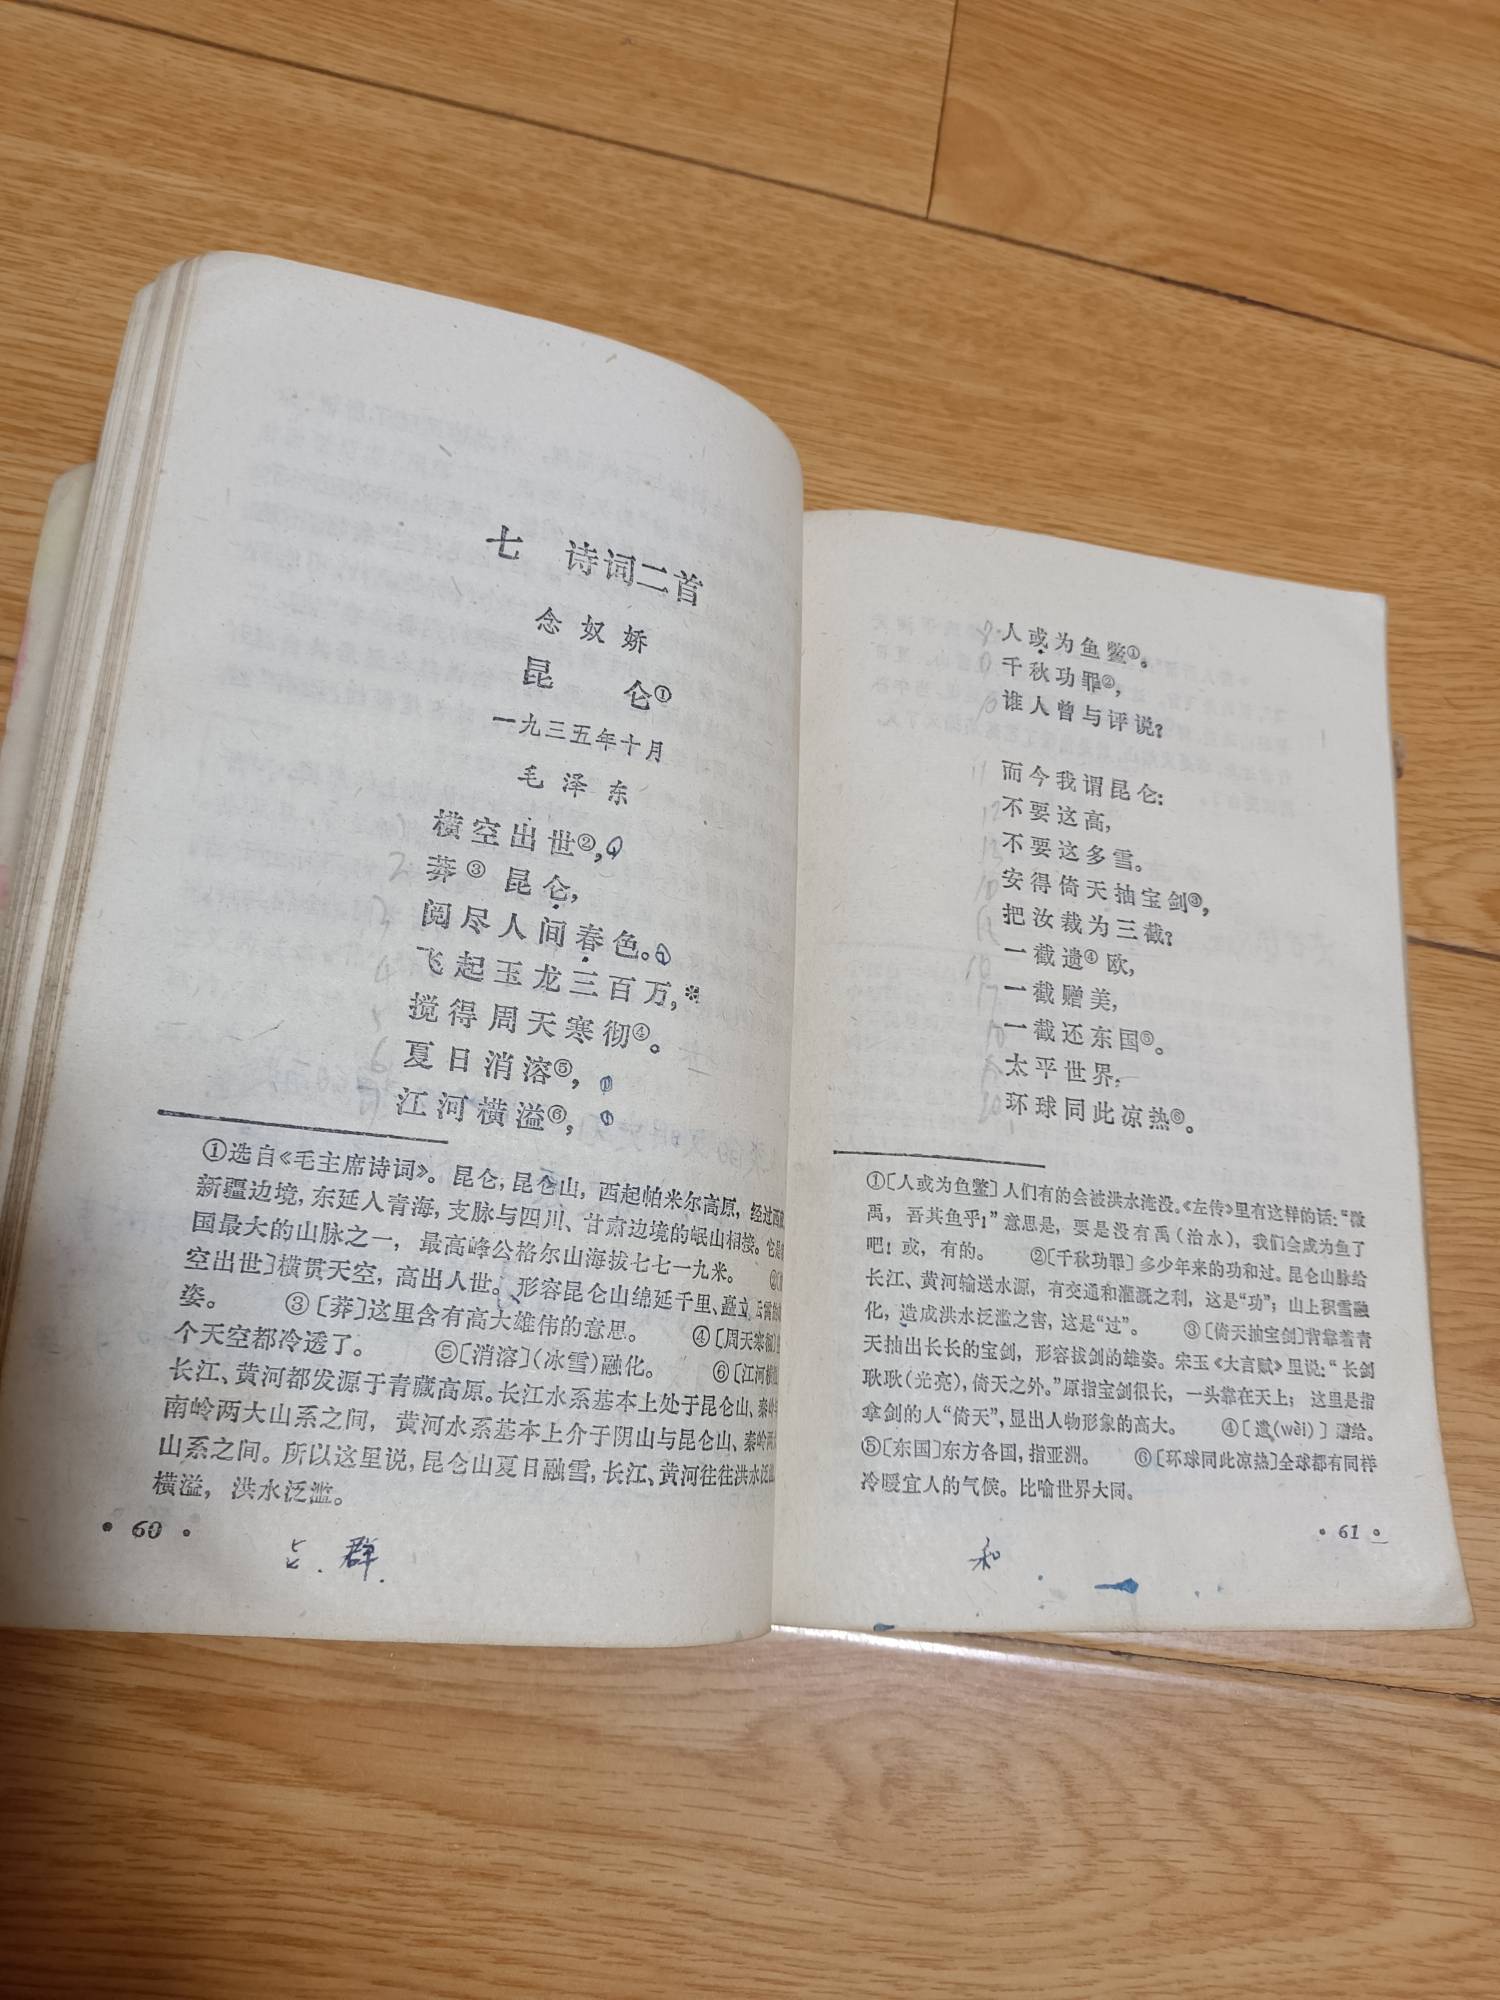 七 诗词二首
念奴娇
昆 仑①
一九三五年十月
毛泽东
横空出世②,
莽③昆仑,
阅尽人间春色。
飞起玉龙三百万,*
搅得周天寒彻④。
夏日消溶⑤,
江河横溢⑥,
①选自《毛主席诗词》。昆仑,昆仑山,西起帕米尔高原,经过西
新疆边境,东延入青海,支脉与四川、甘肃边境的岷山相接。它是
国最大的山脉之一,最高峰公格尔山海拔七七一九米。 ②
空出世〕横贯天空,高出人世。形容昆仑山绵延千里、矗立云霄的
姿。 ③〔莽〕这里含有高大雄伟的意思。 ④〔周天寒彻〕
个天空都冷透了。 ⑤〔消溶〕(冰雪)融化。 ⑥〔江河横
长江、黄河都发源于青藏高原。长江水系基本上处于昆仑山、秦岭
南岭两大山系之间,黄河水系基本上介于阴山与昆仑山、秦岭两
山系之间。所以这里说,昆仑山夏日融雪,长江、黄河往往洪水泛
横溢,洪水泛滥。
· 60 ·
群
人或为鱼鳖①。
千秋功罪②,
谁人曾与评说?
而今我谓昆仑:
不要这高,
不要这多雪。
安得倚天抽宝剑③,
把汝裁为三截?
一截遗④欧,
一截赠美,
一截还东国⑤。
太平世界,
环球同此凉热⑥。
①〔人或为鱼鳖〕人们有的会被洪水淹没。《左传》里有这样的话:“微
禹,吾其鱼乎!”意思是,要是没有禹(治水),我们会成为鱼了
吧!或,有的。 ②〔千秋功罪〕多少年来的功和过。昆仑山脉给
长江、黄河输送水源,有交通和灌溉之利,这是“功”;山上积雪融
化,造成洪水泛滥之害,这是“过”。 ③〔倚天抽宝剑〕背靠着青
天抽出长长的宝剑,形容拔剑的雄姿。宋玉《大言赋》里说:“长剑
耿耿(光亮),倚天之外。”原指宝剑很长,一头靠在天上;这里是指
拿剑的人“倚天”,显出人物形象的高大。 ④〔遗(wèi)〕赠给。
⑤〔东国〕东方各国,指亚洲。 ⑥〔环球同此凉热〕全球都有同样
冷暖宜人的气候。比喻世界大同。
· 61 ·
和